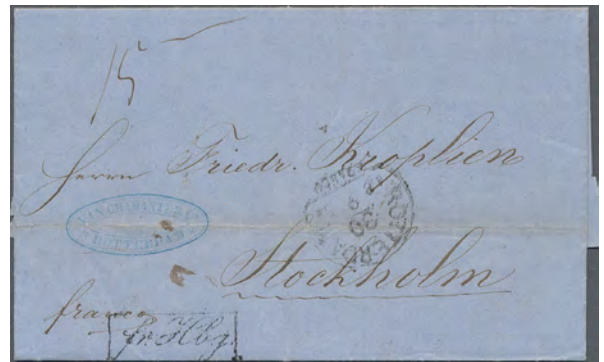 15
Herrn Friedr. Kroplien
VAN CHARANTE & Co
ROTTERDAM
ROTTERDAM
Stockholm
franco
fr. Hbg.